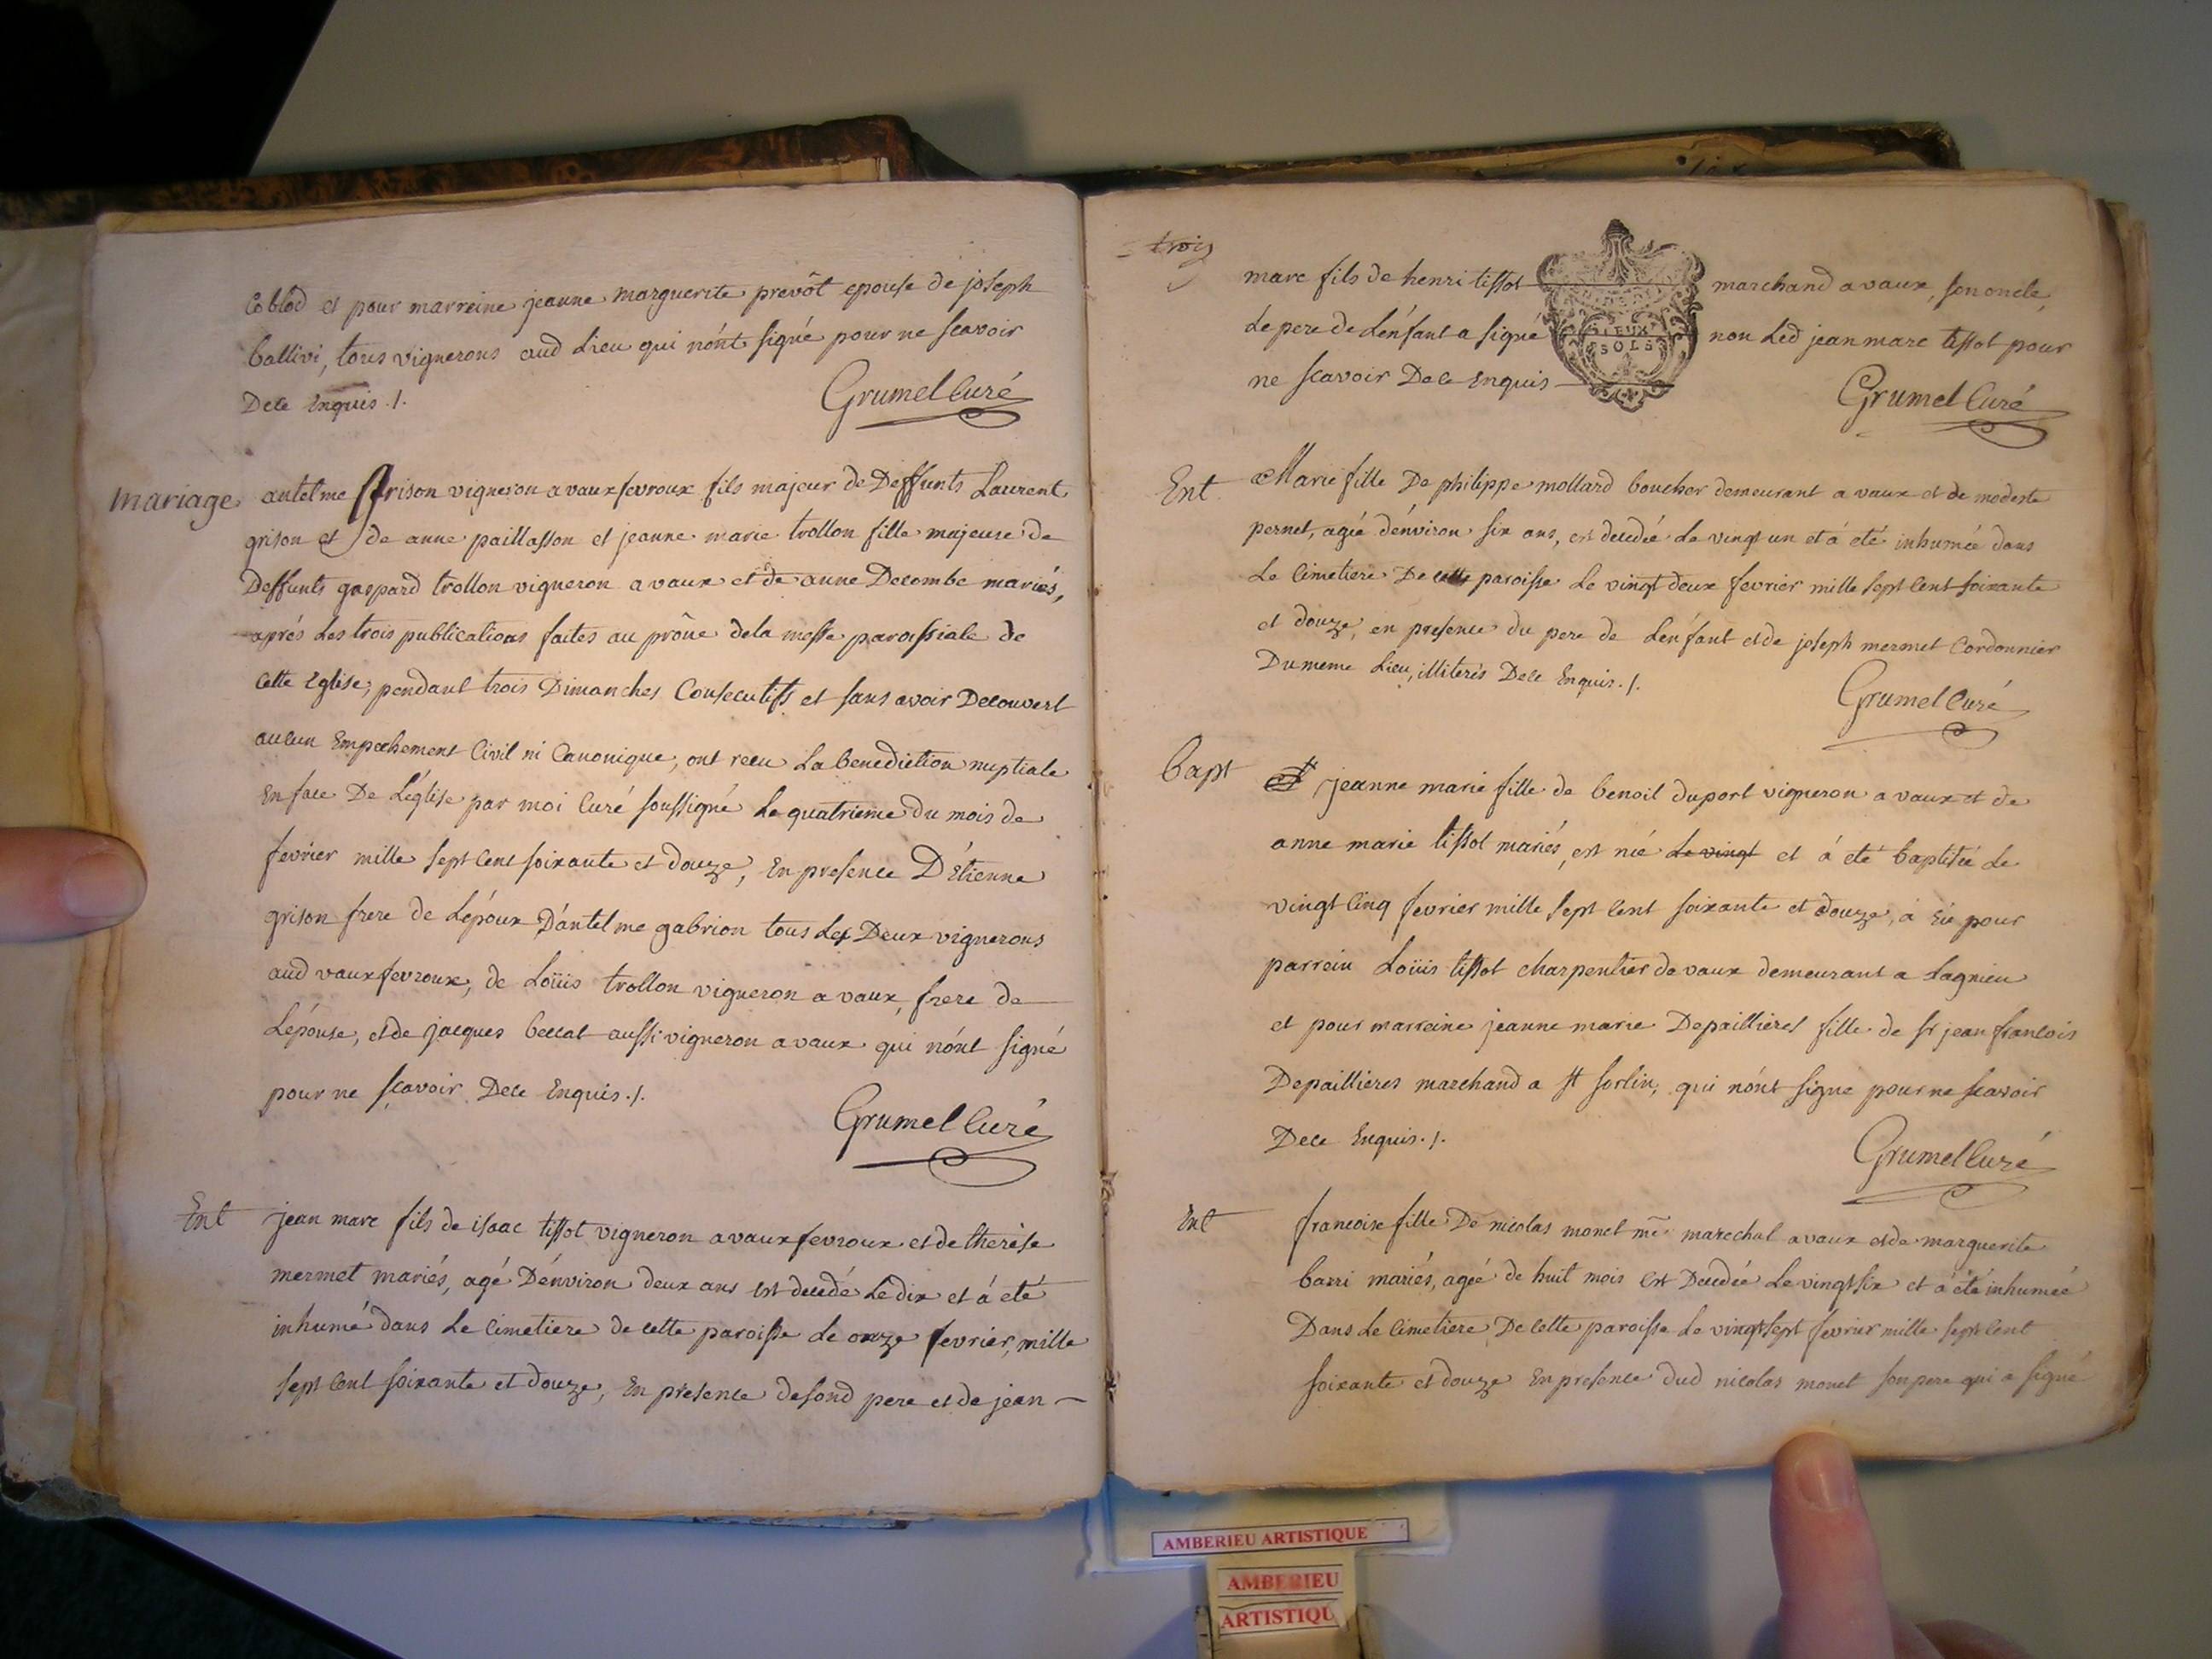 Coblod et pour marreine jeanne marguerite prevôt epouse de joseph
ballivi, tous vignerons aud Lieu qui n'ónt signé pour ne scavoir
De ce Enquis ./.
Grumel Curé
mariage
antelme Grison vigneron a vauxfevroux fils majeur de Deffunts Laurent
grison et de anne paillasson et jeanne marie trollon fille majeure de
Deffunts gaspard trollon vigneron a vaux et de anne Decombe mariés,
aprés Les trois publications faites au prône de la messe paroissiale de
cette Eglise, pendant trois Dimanches Consecutifs et sans avoir Decouvert
aucun Empechement Civil ni Canonique, ont recu La benediction nuptiale
En face De L'église par moi Curé soussigné Le quatrieme du mois de
fevrier mille sept cent soixante et douze, En presence D'Etienne
grison frere de L'époux D'antelme gabrion tous Les Deux vignerons
aud vauxfevroux, de Loüis trollon vigneron a vaux, frere de
L'épouse, et de jacques beccat aussi vigneron a vaux qui n'ónt signé
pour ne scavoir De ce Enquis ./.
Grumel Curé
Ent
jean marc fils de isaac tissot vigneron a vauxfevroux et de therese
mermet mariés, agé D'énviron deux ans est decedé Le dix et á eté
inhumé dans Le Cimetiere de cette paroisse Le onze fevrier, mille
sept cent soixante et douze, En presence de sond pere et de jean
trois
marc fils de henri tissot marchand a vaux, son oncle
Le pere de L'énfant a signé non Led jean marc tissot pour
ne scavoir De ce Enquis
DEUX
SOLS
Grumel Curé
Ent
Marie fille De philippe mollard boucher demeurant a vaux et de modeste
pernet, agée d'énviron six ans, est decedée Le vingt un et á eté inhumée dans
Le Cimetiere De cette paroisse Le vingt deux fevrier mille sept cent soixante
et douze, en presence du pere de L'enfant et de joseph mermet Cordonnier
Du meme Lieu, illiterés De ce Enquis ./.
Grumel Curé
bapt
jeanne marie fille de benoit duport vigneron a vaux et de
anne marie tissot mariés, est née Le vingt et á eté baptisée Le
vingt Cinq fevrier mille sept cent soixante et douze, a Eu pour
parrein Loüis tissot charpentier de vaux demeurant a Lagnieu
et pour marreine jeanne marie Depaillieres fille de sr jean francois
Depaillieres marchand a st sorlin, qui n'ónt signé pour ne scavoir
De ce Enquis ./.
Grumel Curé
Ent
francoise fille De nicolas monet me marechal a vaux et de marguerite
barri mariés, agée de huit mois est Decedée Le vingt six et á eté inhumée
Dans Le Cimetiere De cette paroisse Le vingt sept fevrier mille sept cent
soixante et douze En presence dud nicolas monet son pere qui a signé
AMBERIEU ARTISTIQUE
AMBERIEU
ARTISTIQU